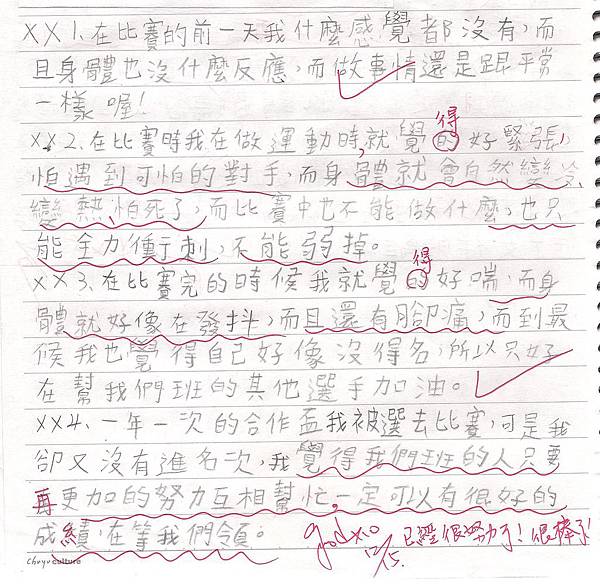 XX1.在比賽的前一天我什麼感覺都沒有,而
且身體也沒什麼反應,而做事情還是跟平常
一樣喔!
得
XX2.在比賽時我在做運動時,就覺的好緊張,
怕遇到可怕的對手,而身體就會自然變冷
變熱,怕死了,而比賽中也不能做什麼,也只
能全力衝刺,不能弱掉。
得
XX3.在比賽完的時候我就覺的好喘,而身
體就好像在發抖,而且還有腳痛,而到最
候我也覺得自己好像沒得名,所以只好
在幫我們班的其他選手加油。
XX4.一年一次的合作盃我被選去比賽,可是我
卻又沒有進名次,我覺得我們班的人只要
再更加的努力互相幫忙。一定可以有很好的
成績,在等我們領。
good x10 已經很努力了!很棒了!
12/15.
Chuyuculture